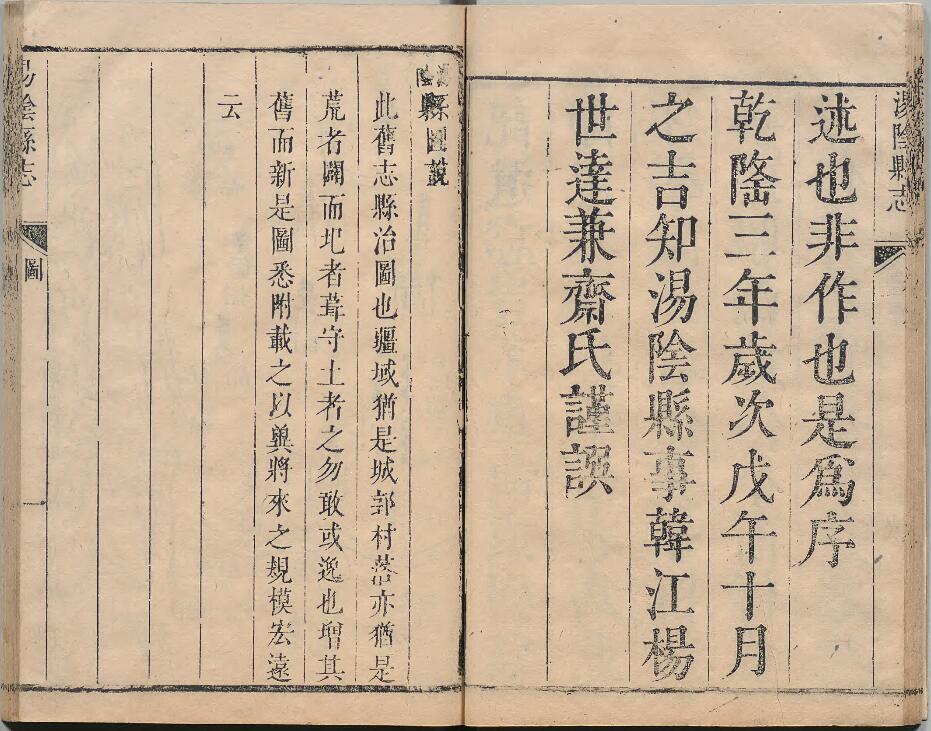 湯陰縣志
述也非作也是爲序
乾隆三年歲次戊午十月
之吉知湯陰縣事韓江楊
世達兼齋氏謹譔
縣圖說
此舊志縣治圖也疆域猶是城郭村落亦猶是
荒者闢而圮者葺守土者之勿敢或逸也增其
舊而新是圖悉附載之以冀將來之規模宏遠
云
陰縣志
圖
一